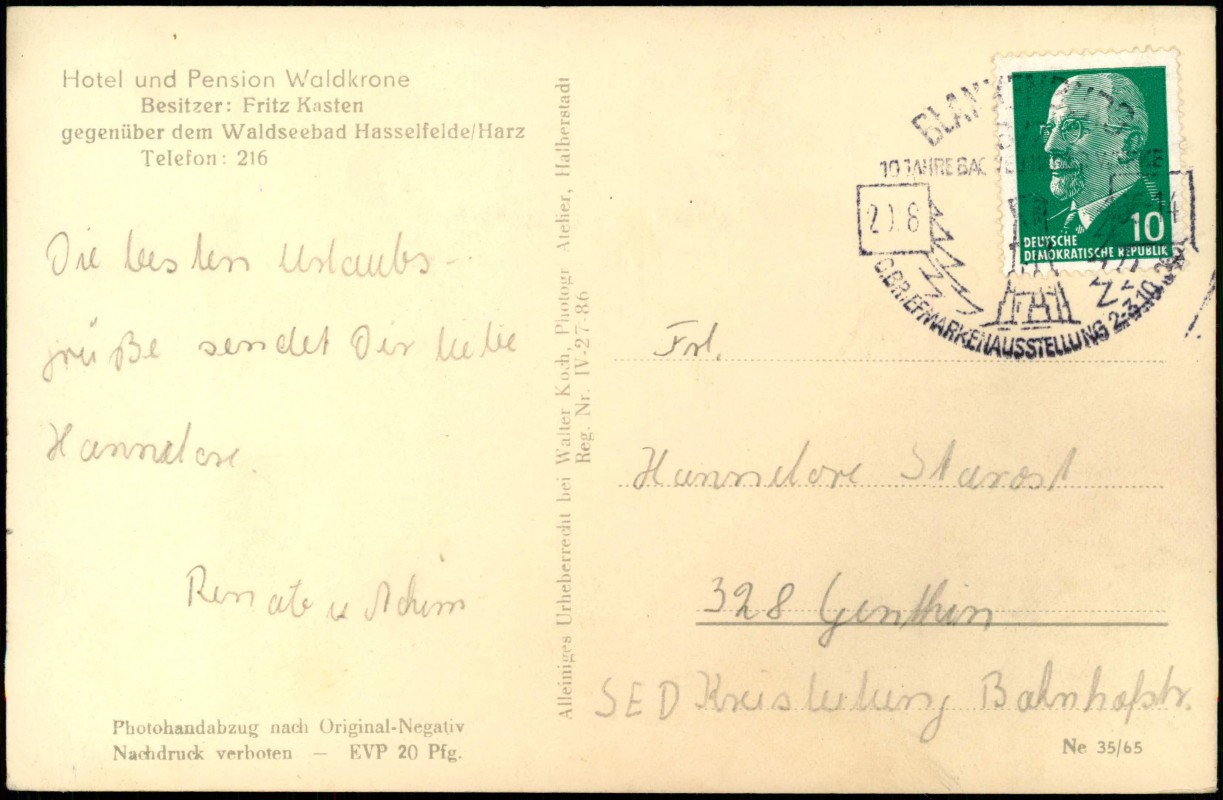 Hotel und Pension Waldkrone
Besitzer: Fritz Kasten
gegenüber dem Waldseebad Hasselfelde/Harz
Telefon: 216
Die besten Urlaubs-
grüße sendet Dir liebe
Hannelore.
Renate u Achim
Photohandabzug nach Original-Negativ
Nachdruck verboten — EVP 20 Pfg.
Alleiniges Urheberrecht bei Walter Koch, Photogr. Atelier, Halberstadt
Reg. Nr. IV-27-86
10 JAHRE
BRIEFMARKENAUSSTELLUNG 2.-3.10.
10
DEUTSCHE
DEMOKRATISCHE REPUBLIK
Frl.
Hannelore Starost
328 Genthin
SED Kreisleitung Bahnhofstr.
Ne 35/65